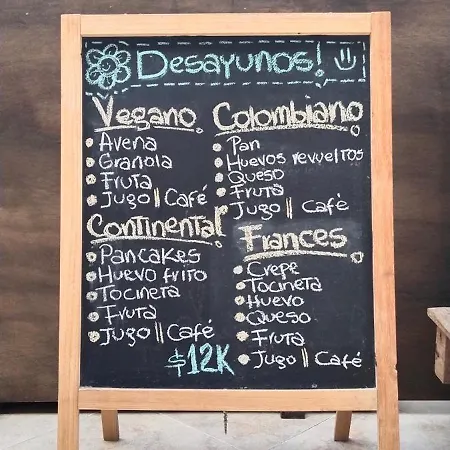 Desayunos!
Vegano
Avena
Granola
Fruta
Jugo || Café
Colombiano
Pan
Huevos revueltos
Queso
Fruta
Jugo || Café
Continental
Pancakes
Huevo frito
Tocineta
Fruta
Jugo || Café
Frances
Crepe
Tocineta
Huevo
Queso
Fruta
Jugo || Café
$12K